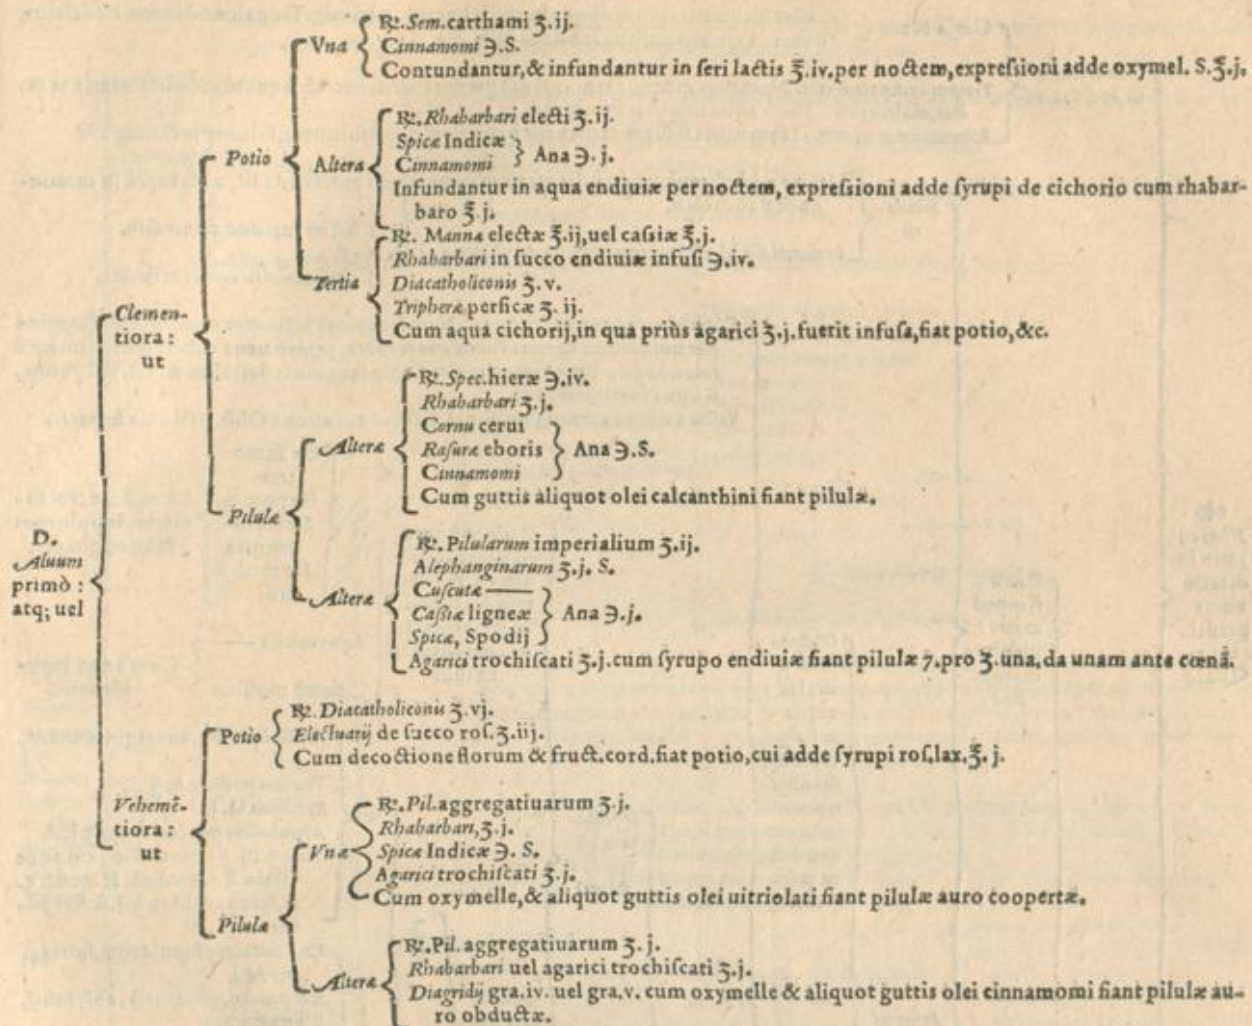 D.
Aluum
primò:
atq; uel
Clemen-
tiora:
ut
Potio
Vna
℞. Sem. carthami ʒ.ij.
Cinnamomi ℈.S.
Contundantur, & infundantur in seri lactis ℥.iv. per noctem, expressioni adde oxymel. S.℥.j.
Altera
℞. Rhabarbari electi ʒ.ij.
Spicæ Indicæ
Cinnamomi
Ana ℈.j.
Infundantur in aqua endiuiæ per noctem, expressioni adde syrupi de cichorio cum rhabar-
baro ℥.j.
Tertia
℞. Manna electæ ℥.ij, uel cassiæ ℥.j.
Rhabarbari in succo endiuiæ infusi ℈.iv.
Diacatholiconis ʒ.v.
Tripheræ persicæ ʒ.ij.
Cum aqua cichorij, in qua priùs agarici ʒ.j. fuerit infusa, fiat potio, &c.
Pilulæ
Alteræ
℞. Spec. hieræ ℈.iv.
Rhabarbari ʒ.j.
Cornu cerui
Rasuræ eboris
Cinnamomi
Ana ℈.S.
Cum guttis aliquot olei calcanthini fiant pilulæ.
Alteræ
℞. Pilularum imperialium ʒ.ij.
Alephanginarum ʒ.j. S.
Cuscutæ
Cassiæ ligneæ
Spicæ, Spodij
Ana ℈.j.
Agarici trochiscati ʒ.j. cum syrupo endiuiæ fiant pilulæ 7. pro ʒ. una, da unam ante cœnã.
Vehemẽ-
tiora:
ut
Potio
℞. Diacatholiconis ʒ.vj.
Electuarij de succo ros. ʒ.iij.
Cum decoctione florum & fruct. cord. fiat potio, cui adde syrupi ros. lax. ℥.j.
Pilulæ
Vnæ
℞. Pil. aggregatiuarum ʒ.j.
Rhabarbari, ʒ.j.
Spicæ Indicæ ℈. S.
Agarici trochiscati ʒ.j.
Cum oxymelle, & aliquot guttis olei uitriolati fiant pilulæ auro coopertæ.
Alteræ
℞. Pil. aggregatiuarum ʒ.j.
Rhabarbari uel agarici trochiscati ʒ.j.
Diagridij gra.iv. uel gra.v. cum oxymelle & aliquot guttis olei cinnamomi fiant pilulæ au-
ro obductæ.